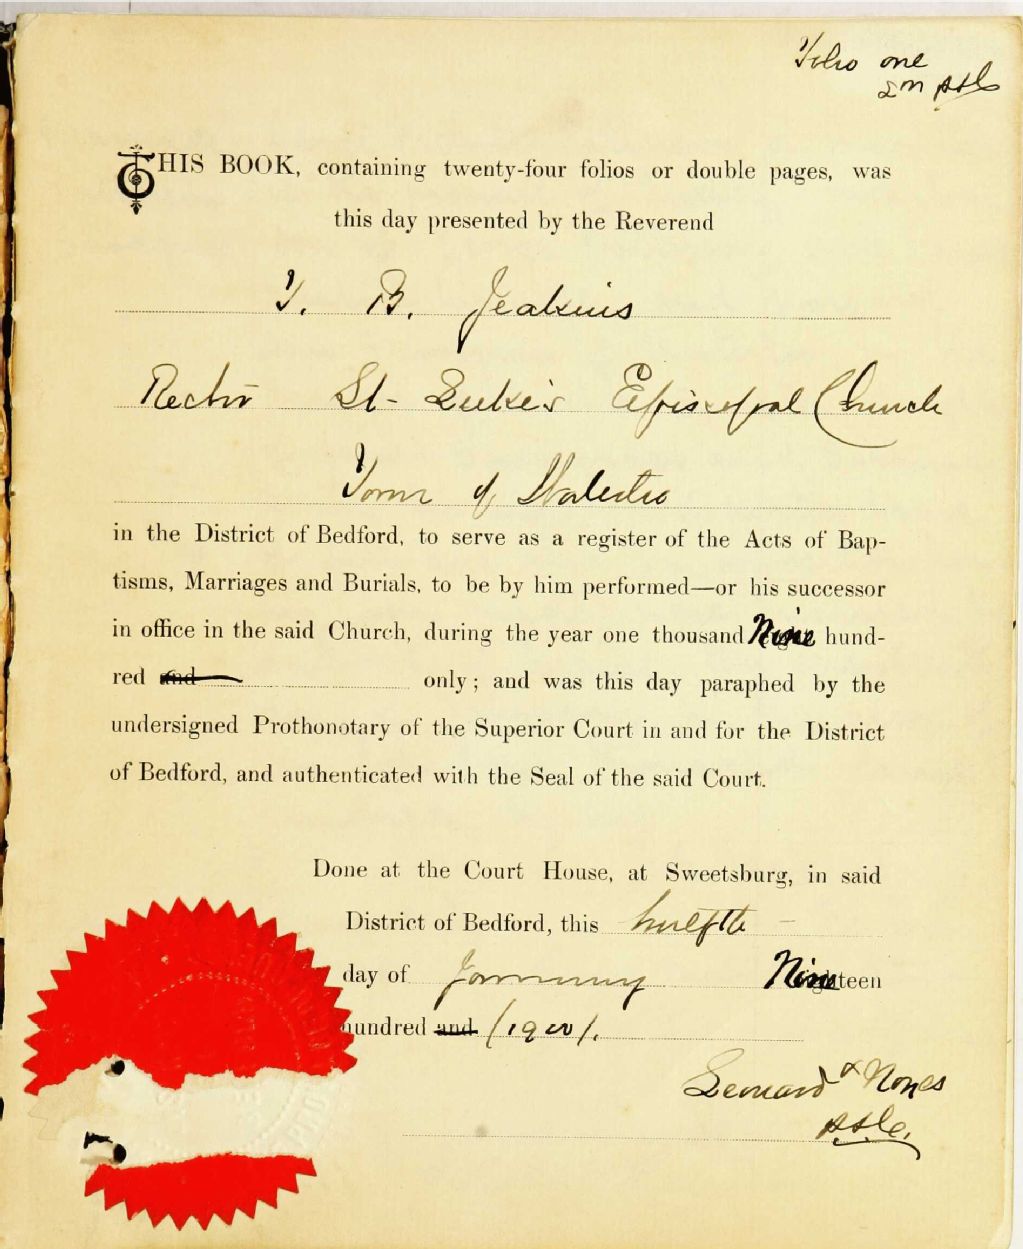 Folio one
THIS BOOK, containing twenty-four folios or double pages, was
this day presented by the Reverend
T. B. Jeakins
Rector St- Luke's Episcopal Church
Town of Waterloo
in the District of Bedford, to serve as a register of the Acts of Bap-
tisms, Marriages and Burials, to be by him performed—or his successor
in office in the said Church, during the year one thousand Nine hund-
red and only; and was this day paraphed by the
undersigned Prothonotary of the Superior Court in and for the District
of Bedford, and authenticated with the Seal of the said Court.
Done at the Court House, at Sweetsburg, in said
District of Bedford, this twelfth
day of January Nineteen
hundred and (1900).
Leonard & Noyes
P.S.C.